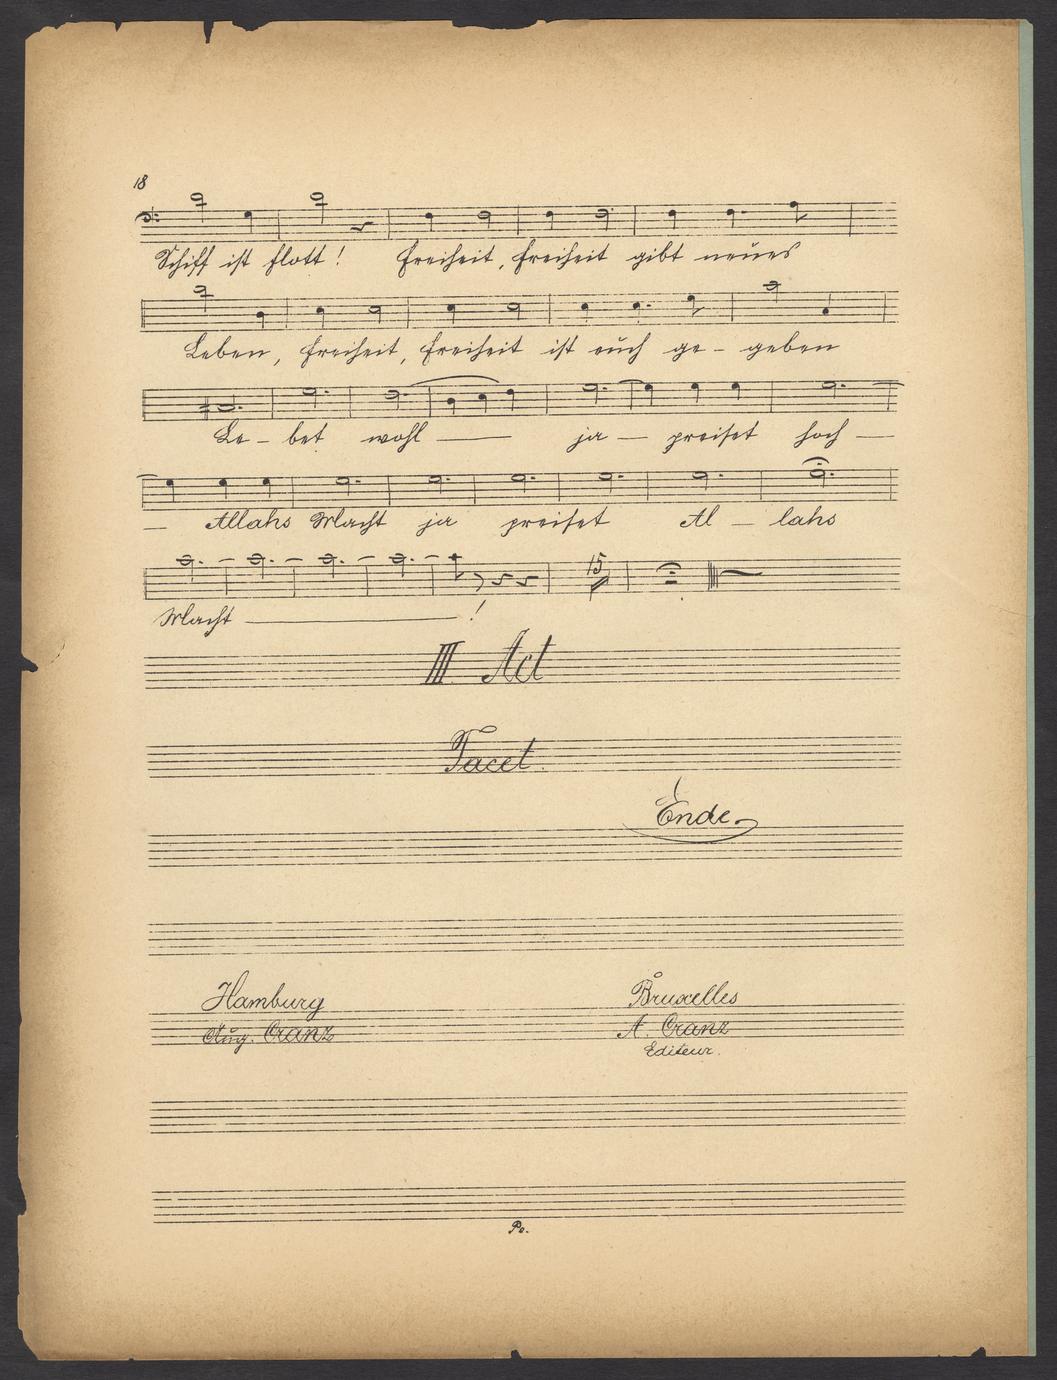 18
Schiff ist flott! Freiheit, Freiheit gibt neues
Leben, Freiheit, Freiheit ist euch ge - geben
Le - bet wohl — ja — preiset hoch —
— Allahs Macht ja preiset Al - lahs
15
Macht — !
III Act
Tacet.
Ende.
Hamburg
Aug. Cranz
Bruxelles
A. Cranz
Editeur.
Po.